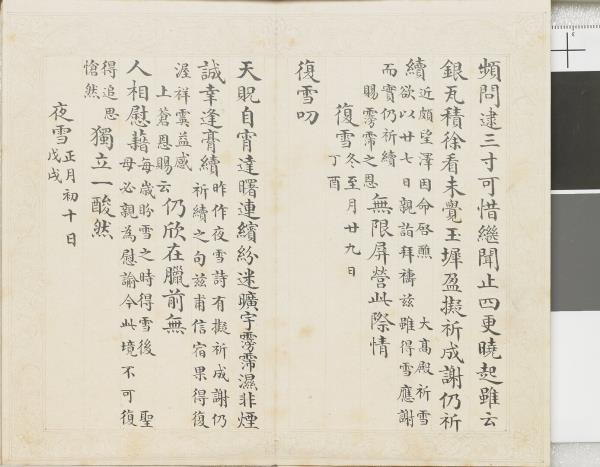 頻問逮三寸可惜繼聞止四更曉起雖云
銀瓦積徐看未覺玉墀盈擬祈成謝仍祈
續近頗望澤因命啓 大高殿祈雪
欲以廿七日親詣拜禱茲雖得雪應謝
而實仍祈續
賜霶霈之恩無限屏營此際情
復雪冬至月廿九日
丁酉
復雪叨
天貺自宵達曙連繽紛迷曠宇霶霈濕非煙
誠幸逢膏續昨作夜雪詩有擬祈成謝仍
祈續之句茲甫信宿果得復
渥祥霙益感
上蒼恩賜云仍欣在臘前無
人相慰藉每歲盼雪之時得雪後 聖
母必親為慰諭今此境不可復
得追思
愴然獨立一酸然
夜雪正月初十日
戊戌